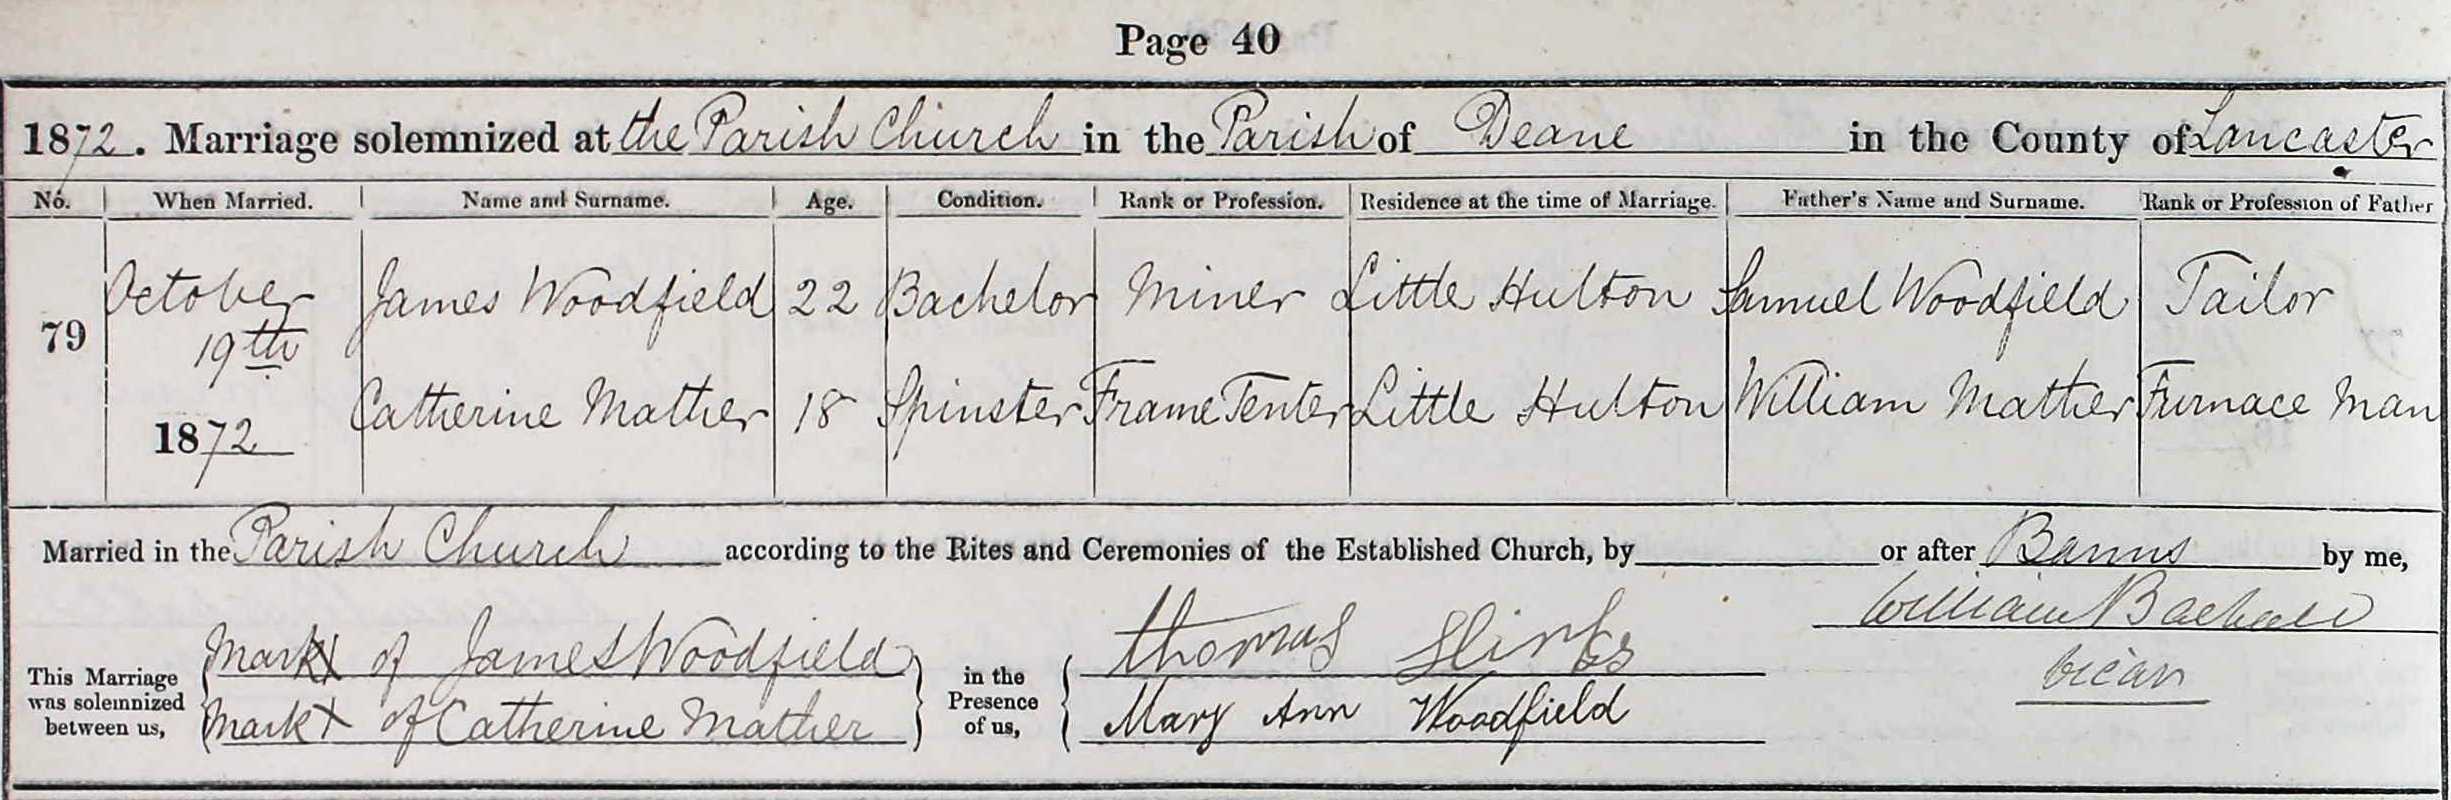 Page 40
1872. Marriage solemnized at the Parish Church in the Parish of Deane in the County of Lancaster
No. When Married. Name and Surname. Age. Condition. Rank or Profession. Residence at the time of Marriage. Father's Name and Surname. Rank or Profession of Father
October James Woodfield 22 Bachelor Miner Little Hulton Samuel Woodfield Tailor
79 19th
Catherine Mather 18 Spinster Frame Tenter Little Hulton William Mather Furnace Man
1872
Married in the Parish Church according to the Rites and Ceremonies of the Established Church, by or after Banns by me,
William
Mark X of James Woodfield Thomas
This Marriage was solemnized between us, in the Presence of us, Vicar
Mark X of Catherine Mather Mary Ann Woodfield